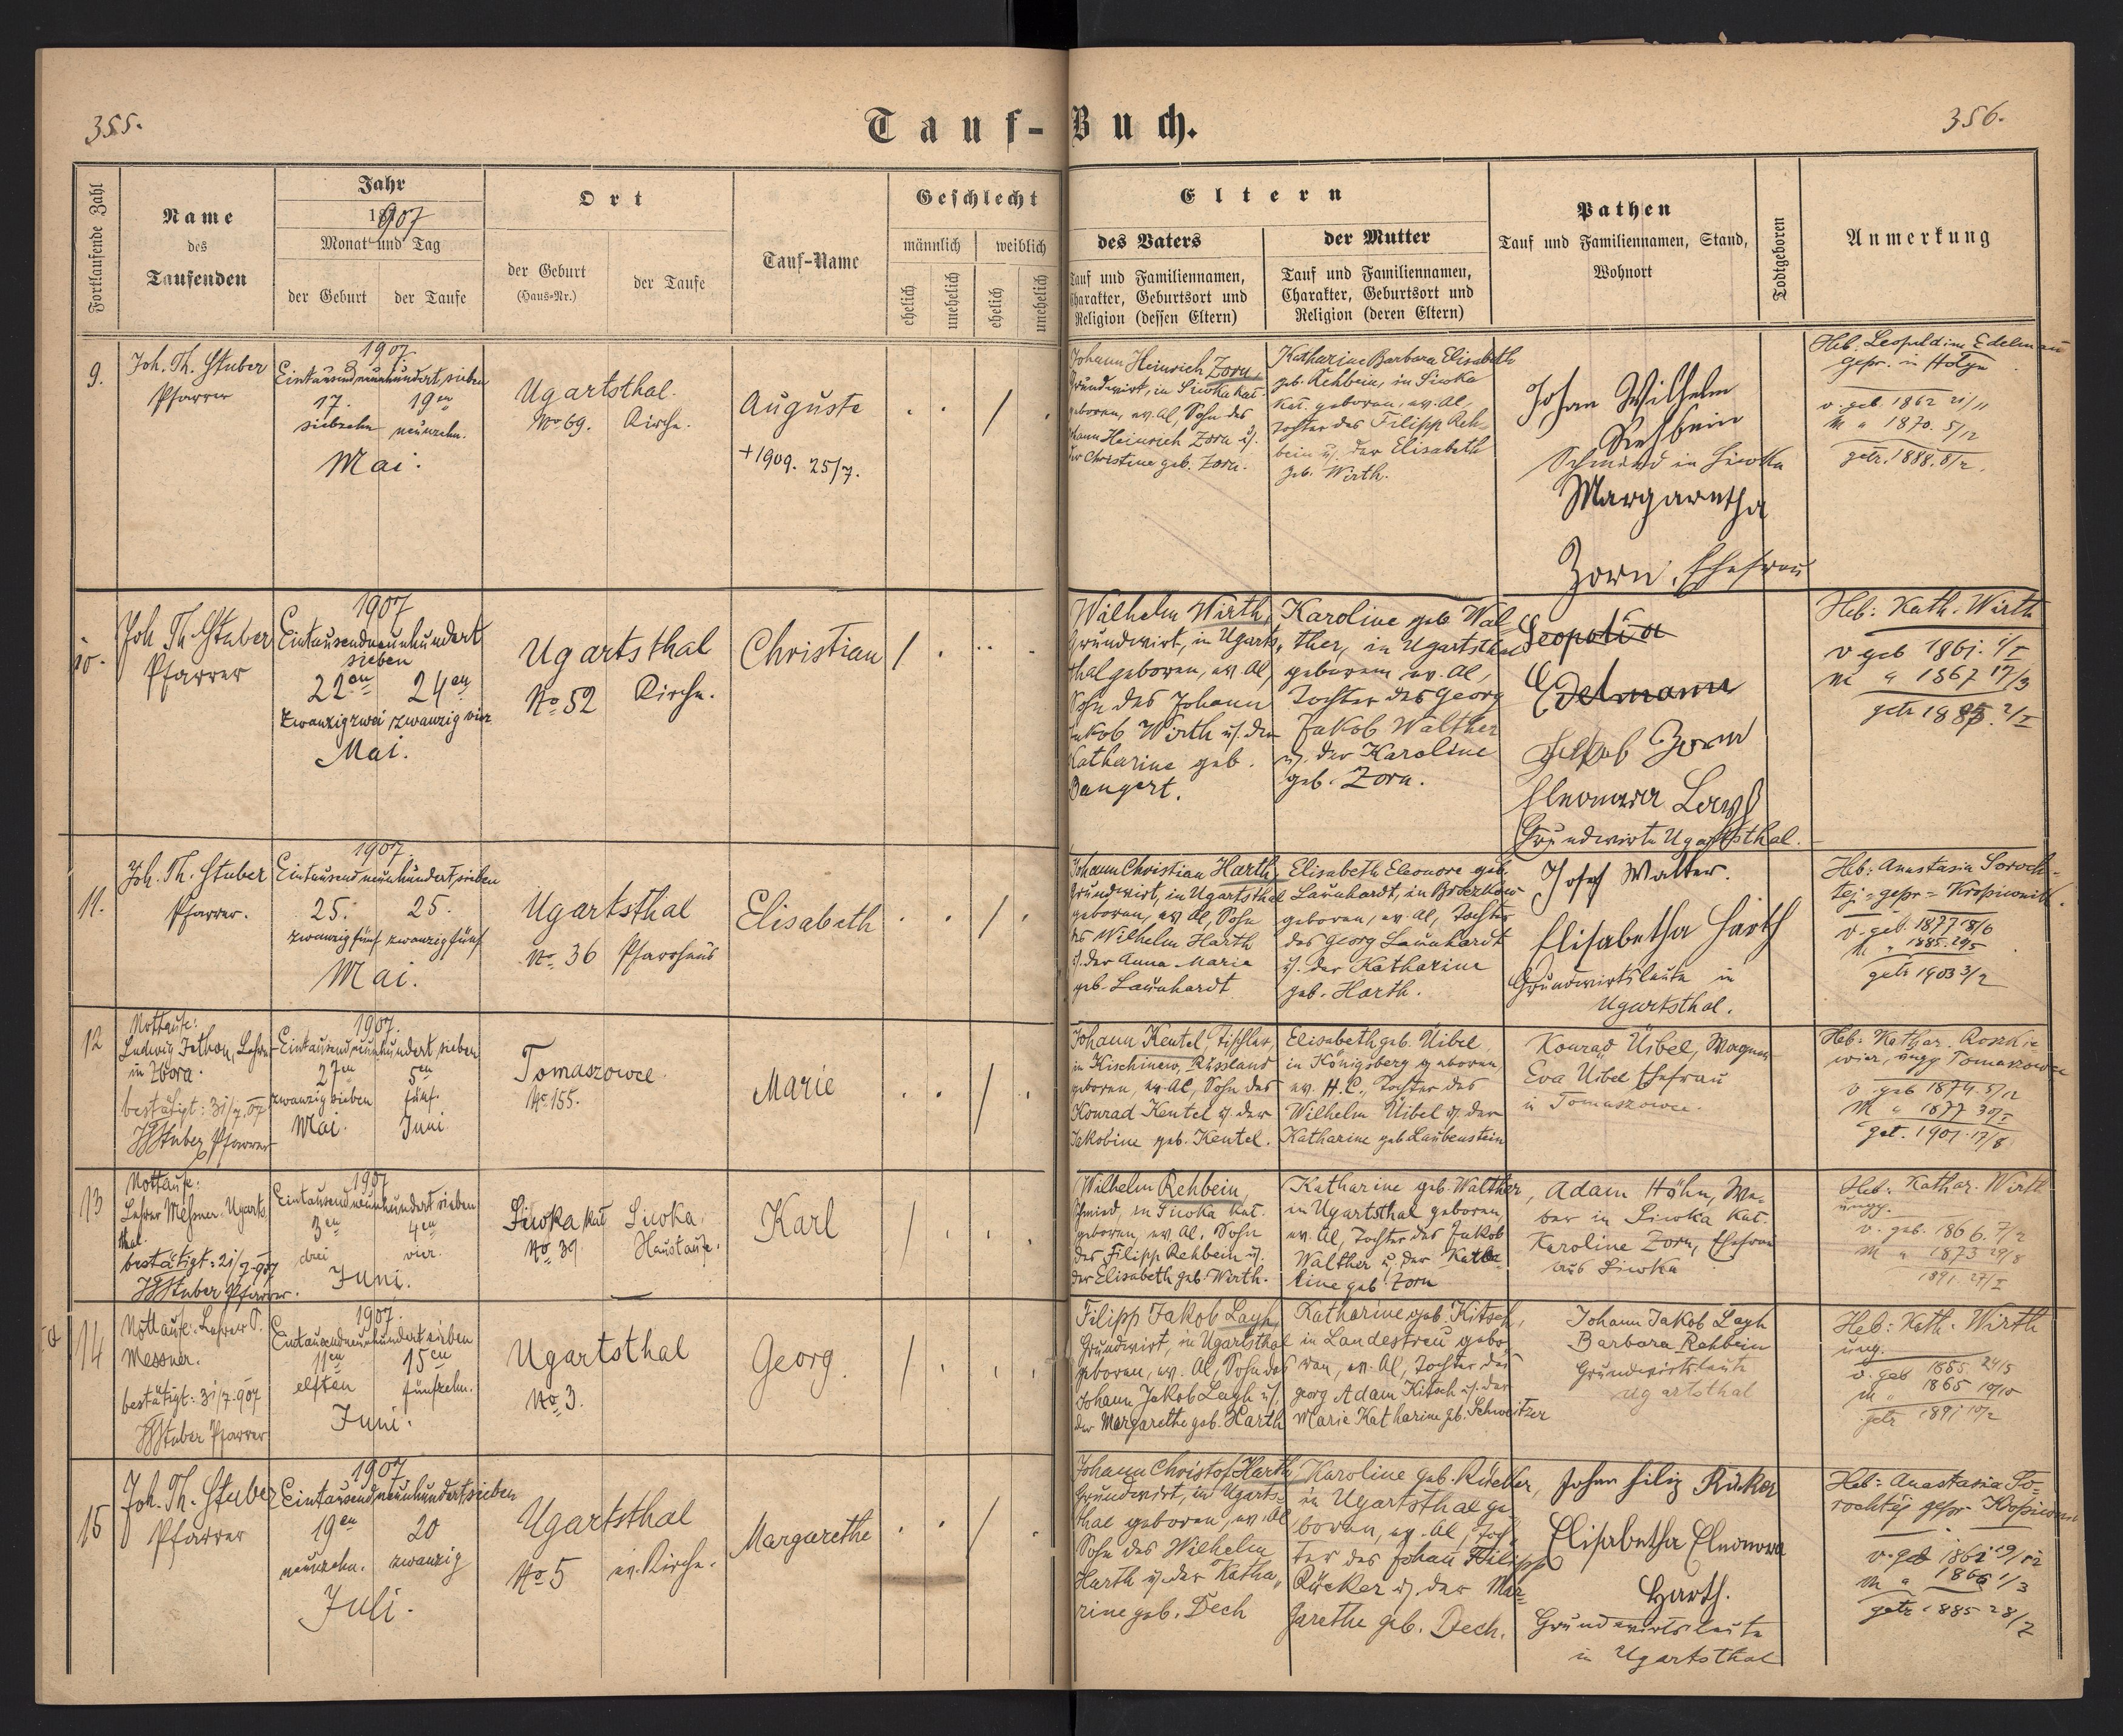 355.
Tauf-Buch.
356.
Fortlaufende Zahl
Name
des
Taufenden
Jahr
1907
Monat und Tag
der Geburt
der Taufe
Ort
der Geburt
(Haus-Nr.)
der Taufe
Tauf-Name
Geschlecht
männlich
weiblich
ehelich
unehelich
ehelich
unehelich
Eltern
des Vaters
Tauf und Familiennamen,
Charakter, Geburtsort und
Religion (dessen Eltern)
der Mutter
Tauf und Familiennamen,
Charakter, Geburtsort und
Religion (deren Eltern)
Pathen
Tauf und Familiennamen, Stand,
Wohnort
Todtgeboren
Anmerkung
9.
Joh. Th. Stuber
Pfarrer
1907.
Eintausendneunhundert sieben
17. 19en
siebzehn neunzehn.
Mai.
Ugartsthal.
No 69. Kirche.
Auguste
+1909. 25/7.
Johann Heinrich Zorn
Grundwirt, in Siwka kat.
geboren, ev. Al, Sohn des
Johann Heinrich Zorn u.
der Christine geb. Zorn.
Katharine Barbara Elisabeth
geb. Rehbein, in Siwka
kat. geboren, ev. Al,
Tochter des Filipp Reh-
bein u. der Elisabeth
geb. Wirth.
Johan Wilhelm
Rehbein
Schmied in Siwka
Margaretha
Zorn, Ehefrau
Heb. Leopoldine Edelmann
gepr. in Holyn
v. geb. 1862 21/11
M " 1870. 5/12
getr. 1888. 8/2.
10.
Joh Th. Stuber
Pfarrer
1907
Eintausendneunhundert
sieben
22en 24en
zwanzigzwei zwanzig vier
Mai.
Ugartsthal
No 52 Kirche.
Christian
Wilhelm Wirth,
Grundwirt, in Ugarts-
thal geboren, ev. Al,
Sohn des Johann
Jakob Wirth u. der
Katharine geb.
Bangert.
Karoline geb. Wal-
ther, in Ugartsthal
geboren ev. Al,
Tochter des Georg
Jakob Walther
u. der Karoline
geb. Zorn.
Edelmann
Jakob Zorn
Eleonora
Grundwirte Ugartsthal.
Heb: Kath. Wirth
v geb 1861. 1/I
M " 1867 17/3
getr 1885. 2/I
11.
Joh. Th. Stuber
Pfarrer.
1907.
Eintausend neunhundert, sieben
25. 25.
zwanzig fünf zwanzig fünf
Mai.
Ugartsthal
No 36 Pfarrhaus
Elisabeth
Johann Christian Harth,
Grundwirt, in Ugartsthal
geboren, ev Al, Sohn
des Wilhelm Harth
u. der Anna Maria
geb. Launhardt
Elisabeth Eleonore geb.
Launhardt, in
geboren, ev. Al, Tochter
des Georg Launhardt
u. der Katharine
geb. Harth.
Josef Walter.
Elisabetha Harth
Grundwirtsleute in
Ugartsthal.
Heb: Anastasia Soroch-
tej = gepr =
v. geb. 1877 18/6
M " 1885. 29/5
getr 1903 3/2
12
Nottaufe:
Ludwig Jethon, Lehrer
in Zbora.
bestätigt: 31/7. 07
JThStuber Pfarrer
1907.
Eintausend neunhundert sieben
27en 5en
zwanzig sieben fünf.
Mai. Juni
Tomaszowce
No 155.
Marie
Johann Keutel, Tischler,
in Kischinew, Russland
geboren, ev. Al, Sohn des
Konrad Keutel u der
Jakobine geb. Keutel.
Elisabeth geb. Uibel
in Königsberg geboren,
ev. H. C., Tochter des
Wilhelm Uibel u. der
Katharine geb Laubenstein
Konrad Üibel, Wagner
Eva Uibel Ehefrau
in Tomaszowce.
Heb: Kathar.
Tomaszowce
v geb 1874. 5/12
M " 1877 30/I
get. 1901. 17/8
13
Nottaufe:
Lehrer Messner. Ugarts
thal.
bestätigt: 21/7. 907
JThStuber Pfarrer.
1907
Eintausend neunhundert sieben
3en 4en
drei vier.
Juni.
Siwka kat Siwka,
No 39 Haustaufe.
Karl
Wilhelm Rehbein,
Schmied, in Siwka kat.
geboren, ev. Al. Sohn
des Filipp Rehbein u.
der Elisabeth geb. Wirth.
Katharine geb. Walther,
in Ugartsthal geboren,
ev. Al, Tochter des Jakob
Walther u. der Katha-
rine geb. Zorn
Adam Höhn, We-
ber in Siwka Kat.
Karoline Zorn, Ehefrau
aus Siwka
Heb: Kathar. Wirth
ungg.
v. geb. 1866. 7/2
M " 1873 29/8
1891. 27/I
14
Nottaufe: Lehrer P.
Messner.
bestätigt: 31/7. 907
JThStuber Pfarrer
1907.
Eintausendneunhundert sieben
11en 15en
elften fünfzehn.
Juni.
Ugartsthal
No 3.
Georg.
Filipp Jakob Layh,
Grundwirt, in Ugartsthal
geboren, ev. Al, Sohn des
Johann Jakob Layh u.
der Margarethe geb. Harth
Katharine geb. Kitsch,
in Landestreu gebo-
ren, ev. Al, Tochter des
Georg Adam Kitsch u. der
Marie Katharine gb. Schweitzer
Johann Jakob Layh
Barbara Rehbein
Grundwirtsleute
Ugartsthal
Heb: Kath. Wirth
ung.
v. geb 1865 24/5
M " 1865 10/10
getr 1891 10/2
15
Joh. Th. Stuber
Pfarrer
1907
Eintausend, neunhundert, sieben
19en 20
neunzehn. zwanzig
Juli.
Ugartsthal
No 5 ev. Kirche.
Margarethe
Johann Christof Harth
Grundwirt, in Ugarts-
thal geboren, ev. Al
Sohn des Wilhelm
Harth u. der Katha-
rine geb. Dech
Karoline geb. Rücker,
in Ugartsthal ge-
boren, ev. Al, Toch-
ter des Johan Filipp
Rücker u. der Mar-
garethe geb. Dech.
Johan Filip Rücker
Elisabetha Eleonora
Harth.
Grundwirtsleute
in Ugartsthal
Heb: Anastasia So-
rochtej gepr
v. geb 1862 19/12
M " 1866 1/3
getr 1885 28/2